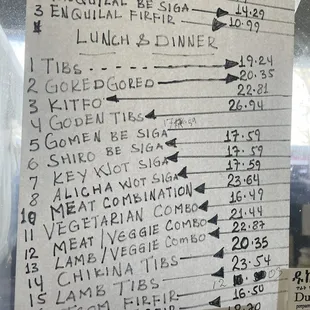 ENQUILAL BE SIGA 14.29
3 ENQUILAL FIRFIR 10.99
LUNCH & DINNER
1 TIBS 19.24
2 GORED GORED 20.35
3 KITFO 22.81
4 GODEN TIBS 26.94
5 GOMEN BE SIGA 17.59
6 SHIRO BE SIGA 17.59
7 KEY WOT SIGA 17.59
8 ALICHA WOT SIGA 23.64
10 MEAT COMBINATION 16.49
11 VEGETARIAN COMBO 21.44
12 MEAT/VEGGIE COMBO 22.87
13 LAMB/VEGGIE COMBO 20.35
14 CHIKINA TIBS 23.54
15 LAMB TIBS
FIRFIR 16.50
Du